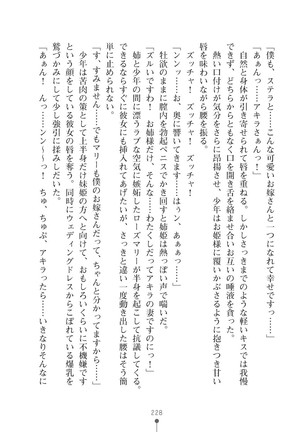 「僕も、ステラと……こんな可愛いお嫁さんと一つになれて幸せです」
「あぁんっ……アキラさぁんっ」
自然と身体が引き寄せられて唇を重ねる。しかしさっきまでのような軽いキスでは我慢
できず、どちらからともなく口を開き舌を絡ませ合いお互いの唾液を貪った。
熱い口付けが気分をさらに昂揚させ、少年はお姫様に覆いかぶさるように抱きつき甘い
唇を味わいながら腰を振る。
ズッチャ！　ズッチャ！　ズッチャ！
「ンンッ……お、奥に響いてきますっ……はぅン、あぁぁっ……」
牡欲のままに膣内を勃起ペニスでかき回すと姉姫は熱っぽい声で喘いだ。
「ズルいですわっ、お姉様っ……わたくしだってアキラの妻ですのにっ！」
姉と少年の間に漂うラブな空気に嫉妬したローズマリーが半身を起こして抗議してくる。
できればすぐに彼女にも挿入れてあげたいが、さっきと違い一度動き出した腰はそう簡
単に止められない。
「す、すみません……でもマリーも僕のお嫁さんだって、ちゃんと分かってますから……」
少年は苦肉の策として上半身だけ妹姫の方へと向けて、おもしろくないくらいに不機嫌です
という顔をしている彼女の唇を奪う。同時にウェディングドレスからこぼれている爆乳を
鷲づかみにして少し強引に揉みしだいた。
「あぁん！　んっ～ンン～っ！　ちゅ、ちゅぷ、アキラったら……いきなりそんなに